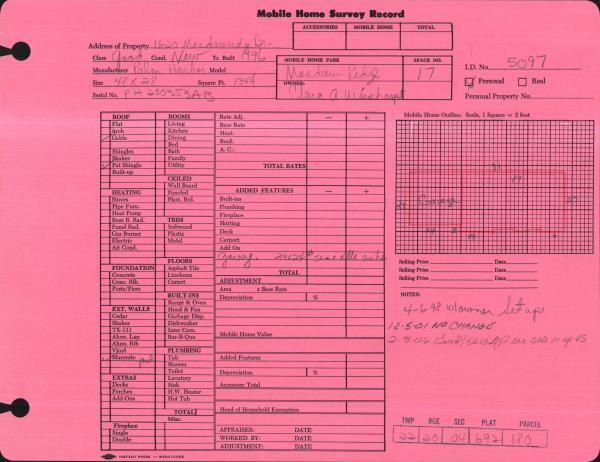 Mobile Home Survey Record
ACCESSORIES MOBILE HOME TOTAL
Address of Property 1620 Meadowridge Dr.
Class Good Cond. New Yr. Built 1996
Manufacturer Palm Harbor Model
Size 48 x 28 Square Ft. 1344
Serial No. PH 200353AB
MOBILE HOME PARK SPACE NO.
Meadow Ridge 17
OWNER:
Clara A
I.D. No. 5097
Personal Real
Personal Property No.
ROOF
Flat
Arch
Gable
Shingles
Shakes
Pat Shingle
Built-up
HEATING
Stoves
Pipe Furn.
Heat Pump
Base B. Rad.
Panel Rad.
Gas Burner
Electric
Air Cond.
FOUNDATION
Concrete
Conc. Blk.
Posts/Piers
EXT. WALLS
Cedar
Shakes
TX-111
Alum. Lap
Alum. Rib
Vinyl
Masonite
EXTRAS
Decks
Porches
Add-Ons
Fireplace
Single
Double
ROOMS
Living
Kitchen
Dining
Bed
Bath
Family
Utility
CEILED
Wall Board
Paneled
Plast. Brd.
TRIM
Softwood
Plastic
Metal
FLOORS
Asphalt Tile
Linoleum
Carpet
BUILT-INS
Range & Oven
Hood & Fan
Garbage Disp.
Dishwasher
Inter Com.
Bar-B-Que
PLUMBING
Tub
Shower
Toilet
Lavatory
Sink
H.W. Heater
Hot Tub
TOTAL
Misc.
Rate Adj. — +
Base Rate
Heat:
Roof:
A. C.:
TOTAL RATES
ADDED FEATURES — +
Built-ins
Plumbing
Fireplace
Skirting
Deck
Carport
Add On
Garag. 24x24
TOTAL
ADJUSTMENT
Area x Base Rate
Depreciation %
Mobile Home Value
Added Features
Depreciation %
Accessory Total
Head of Household Exemption
APPRAISER: DATE
WORKED BY: DATE
ADJUSTMENT: DATE
Mobile Home Outline. Scale, 1 Square = 2 feet
Garage
Selling Price Date
Selling Price Date
Selling Price Date
NOTES:
4-6-98 w/owner Set up
12-5-01 NO CHANGE
TWP RGE SEC PLAT PARCEL
22 20 04 692 180